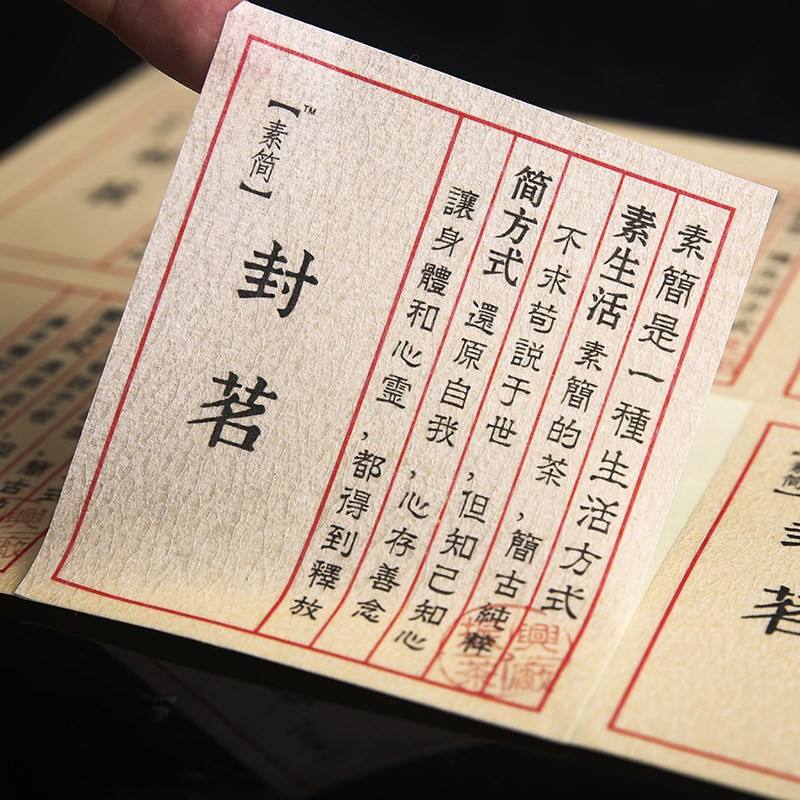 素簡是一種生活方式
素生活 素簡的茶，簡古純粹
不求苟説于世，但知己知心
简方式 還原自我，心存善念
讓身體和心靈，都得到釋放
【素简】™
封茗
興廠
茶
【素简】
茗